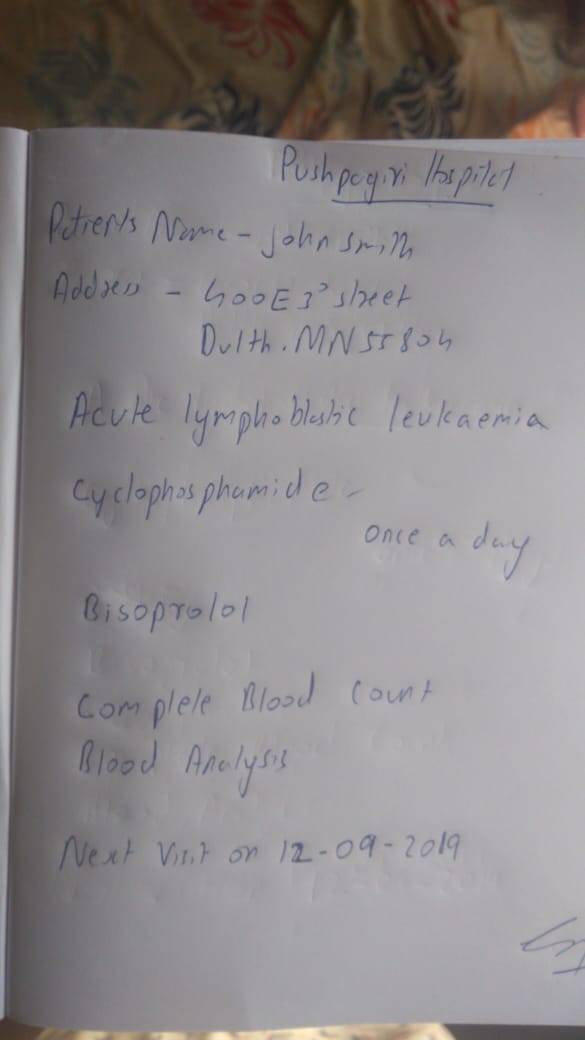 Pushpagiri Hospital
Patients Name - John Smith
Address - 400E 3° street
Dulth. MN 55804
Acute lymphoblastic leukaemia
Cyclophosphamide -
once a day
Bisoprolol
Complete Blood Count
Blood Analysis
Next Visit on 12-09-2019